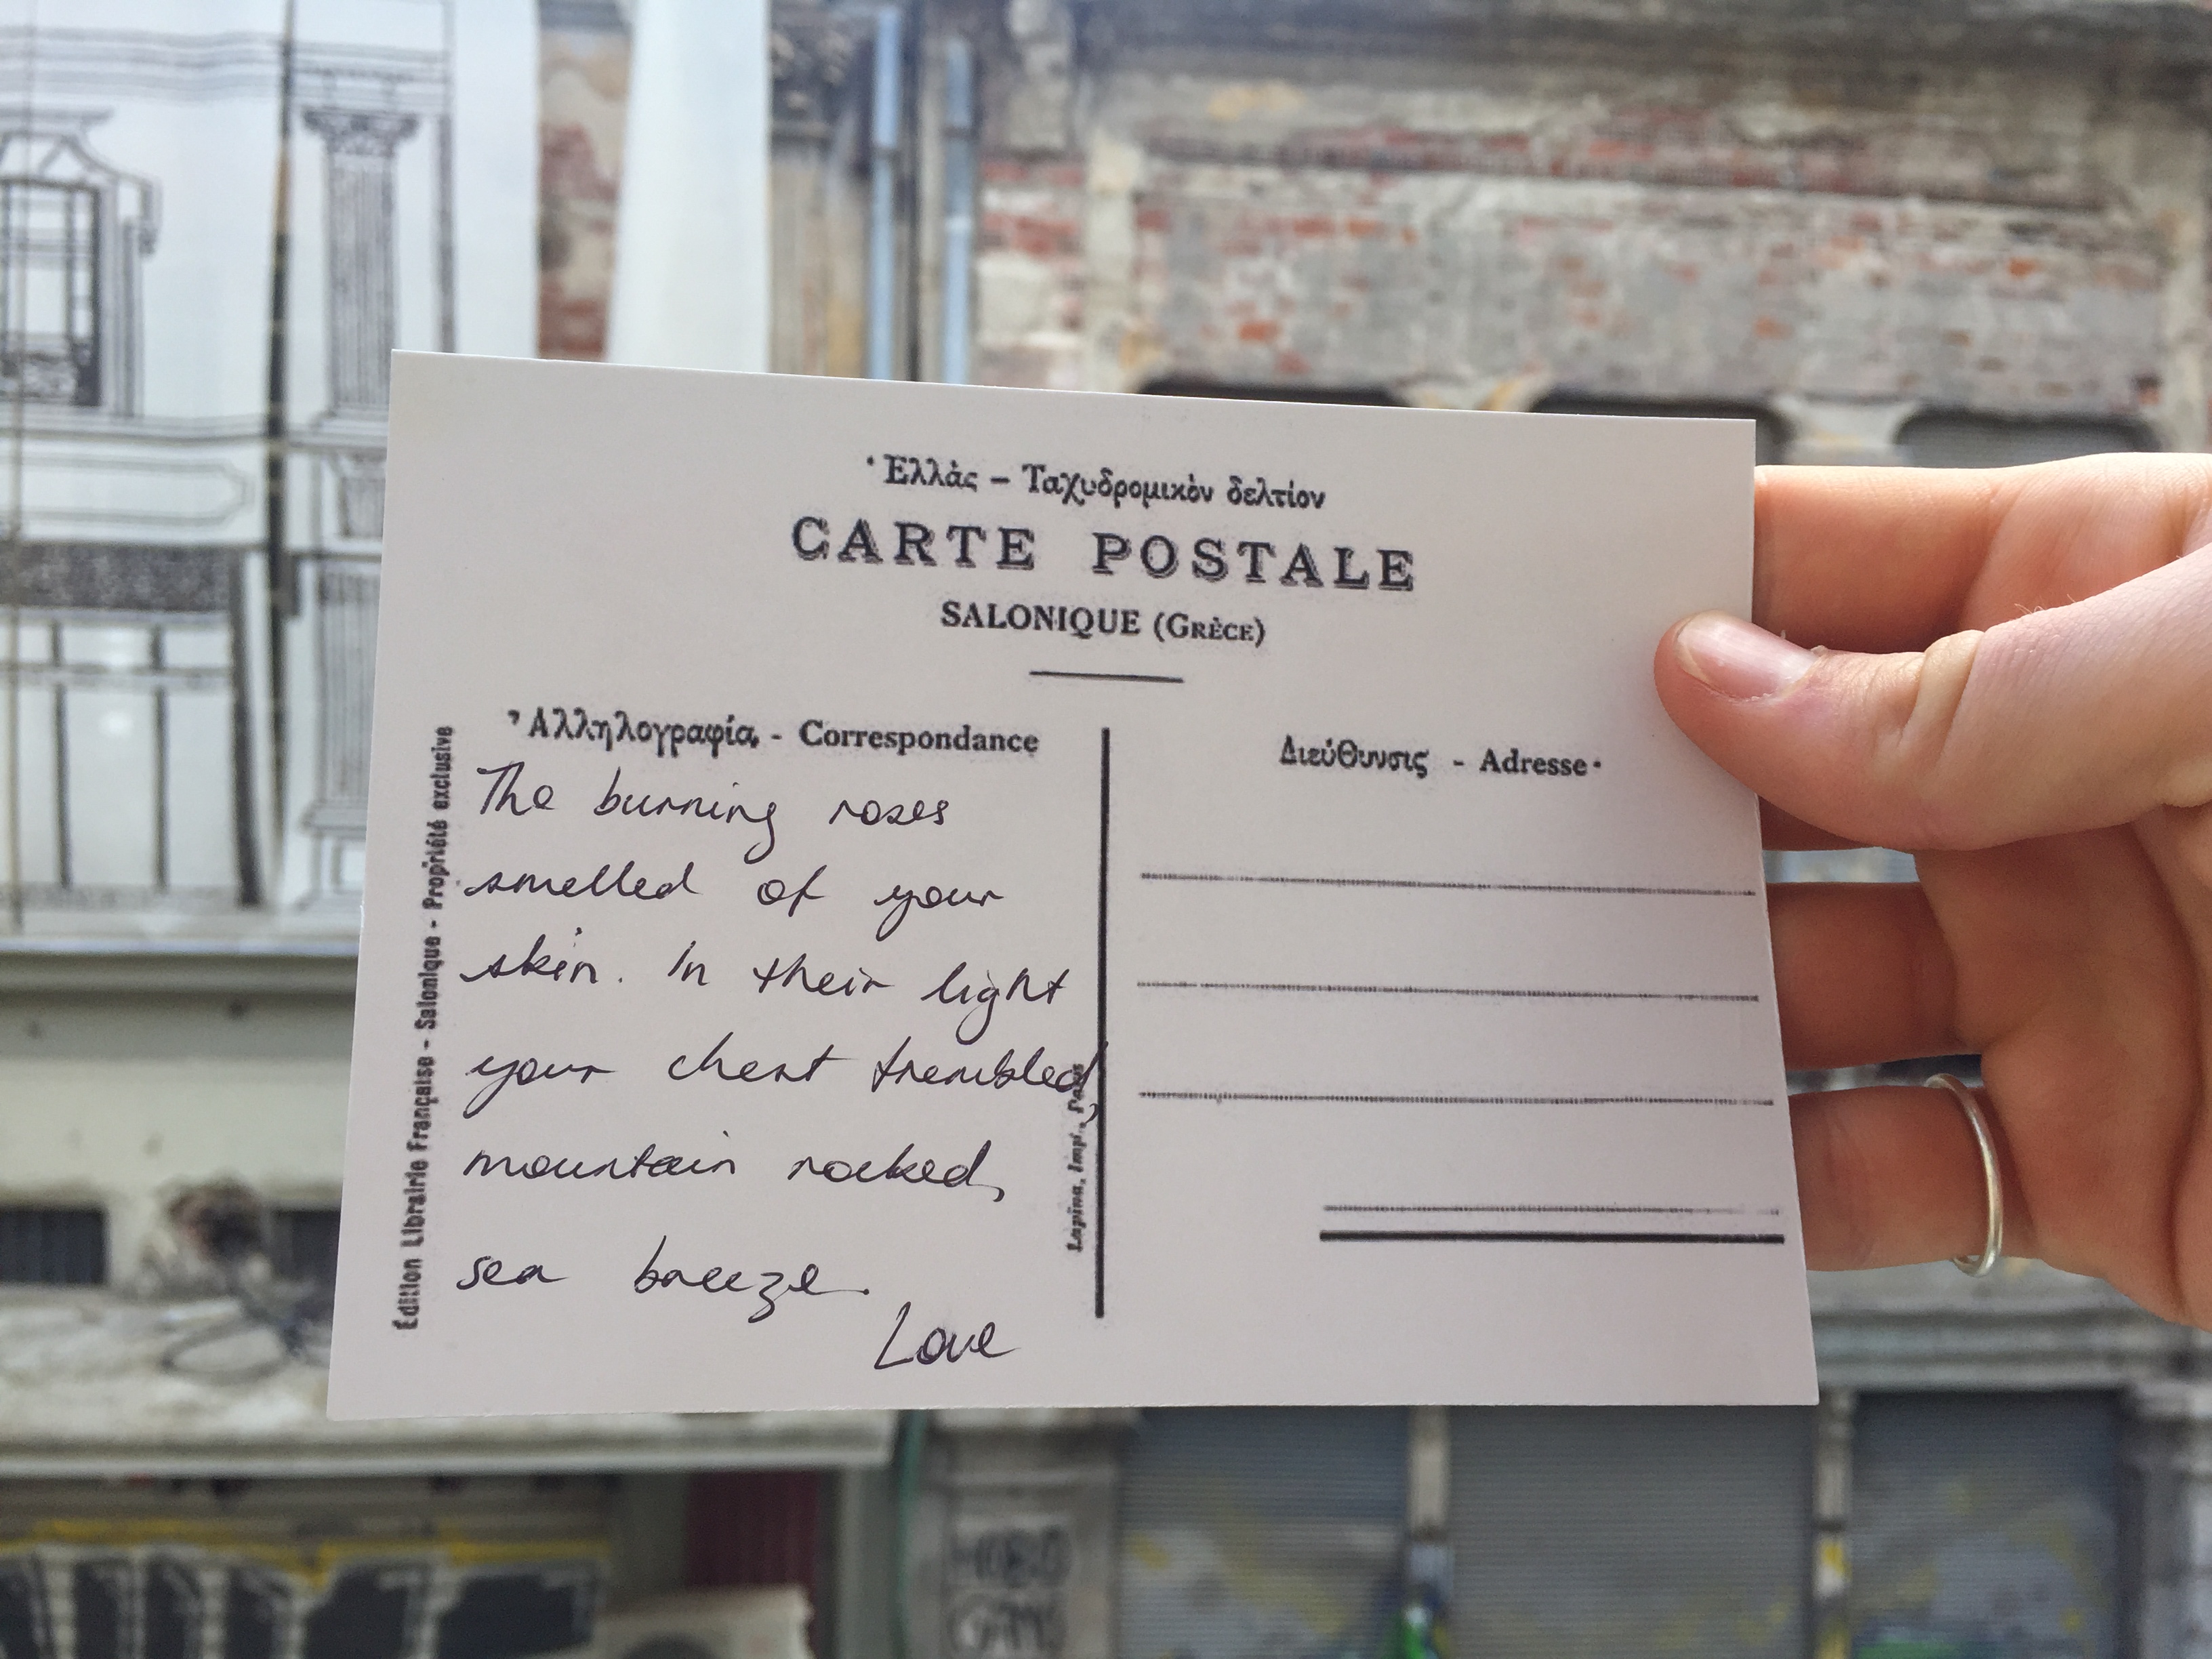 Ἑλλὰς – Ταχυδρομικὸν δελτίον
CARTE POSTALE
SALONIQUE (GRÈCE)
Ἀλληλογραφία - Correspondance
The burning roses
smelled of your
skin. In their light
your chest trembled,
mountain rocked,
sea breeze.
Love
Διεύθυνσις - Adresse
Édition Librairie Française - Salonique - Propriété exclusive
Lapina, Imp., Paris
HOBO